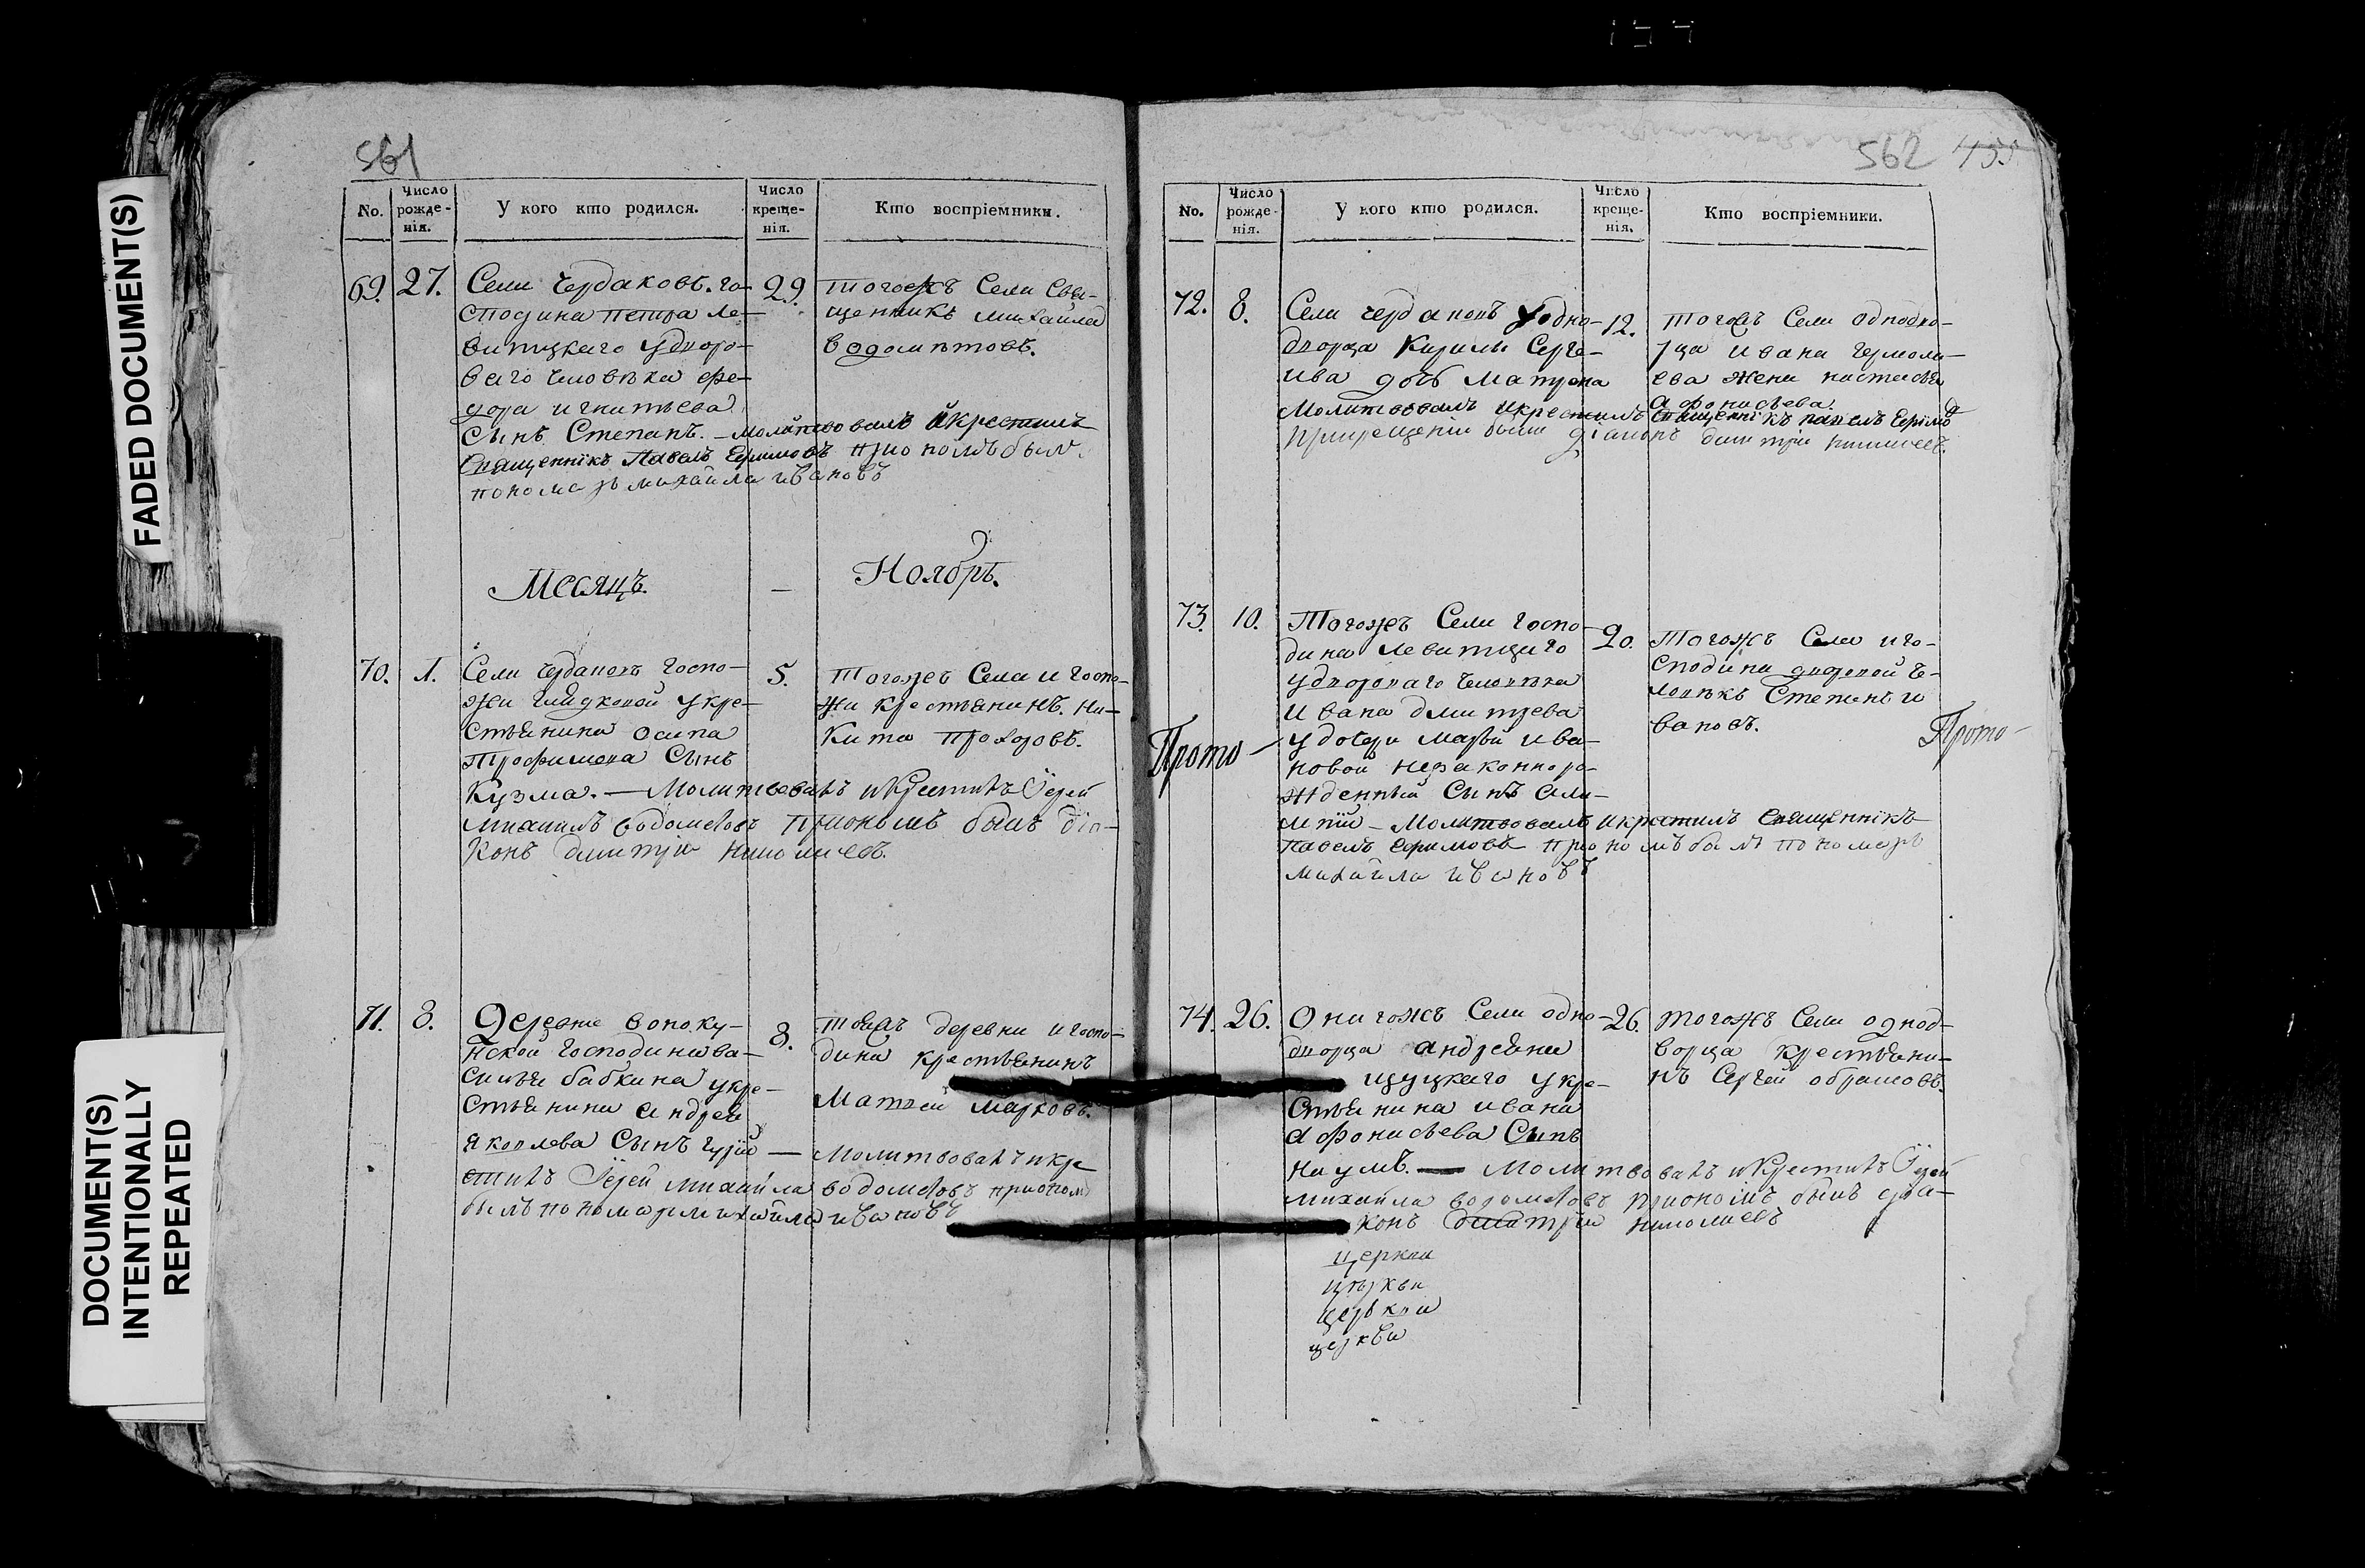 FADED DOCUMENT(S)
DOCUMENT(S)
INTENTIONALLY
REPEATED
561
No.
Число рожде- нія.
У кого кто родился.
Число креще- нія.
Кто воспріемники.
69. 27.
Села Чердаковъ. го-
сподина петра Ле-
витцкаго удворо-
ваго человѣка фе-
дора игнатьева
сынъ Степанъ. — молитвовалъ икрестилъ
Священнікъ Павелъ Ефимовъ приономъ былъ
пономарь михайла ивановъ
29.
тогожъ Села Свя-
щенникъ михайла
водомѣтовъ.
Месяцъ. — Ноябрь.
70. 1.
Села чердаковъ госпо-
жи гладковой укре-
стьянина осипа
трофимова Сынъ
Кузма. — Молитвовалъ икрестилъ Іерей
михаилъ водометовъ приономъ былъ діа-
конъ дмитри николаевъ.
5.
тогожъ Села и госпо-
жи крестьянинъ. ни-
кита прохоровъ.
71. 8.
Деревне
нской господина ва-
силья бабкина укре-
стьянина андрея
яковлева Сынъ гурій — молитвовалъ икре
стилъ Іерей михайла водометовъ приономъ
былъ пономарь михайла ивановъ
8.
тойжъ деревни и госпо-
дина крестьянинъ
Матвей марковъ.
562 455
No.
Число рожде- нія.
У кого кто родился.
Число креще- нія.
Кто воспріемники.
72. 8.
Села чердаковъ уодно-
дворца Кирилы Серге-
ива дочь матрона
молитвовалъ икрестилъ священнікъ павелъ Ефімов
прикрещении были діаконъ дмитри николаевъ.
12.
тогожъ Села однодво-
рца ивана ермола-
ева жена настасья
афонасьева.
73. 10.
Тогожъ Села госпо-
дина левитцкаго
удвороваго человѣка
ивана дмитрева
удочери марьи ива-
новой незаконноро-
жденный Сынъ али-
мпій — Молитвовалъ икрестилъ священнікъ
павелъ ефимовъ приономъ былъ пономарь
михайла ивановъ
20.
Тогожъ Села иго-
сподина дворовой че-
ловѣкъ Степанъ и
вановъ.
Прото-
Прото-
74. 26.
Оногожъ Села одно-
дворца андреяна
щуцкаго укре-
стьянина ивана
афонасьева Сынъ
наумъ. — молитвовалъ икрестилъ Іерей
михайла водометовъ приономъ былъ діа-
конъ дмитрій николаевъ
26.
тогожъ Села однод-
ворца крестьяни-
нъ Сергей абрамовъ.
церкви
церкви
церькви
церкви